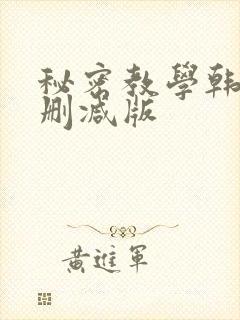 秘密教學韩
删减版
黄進軍